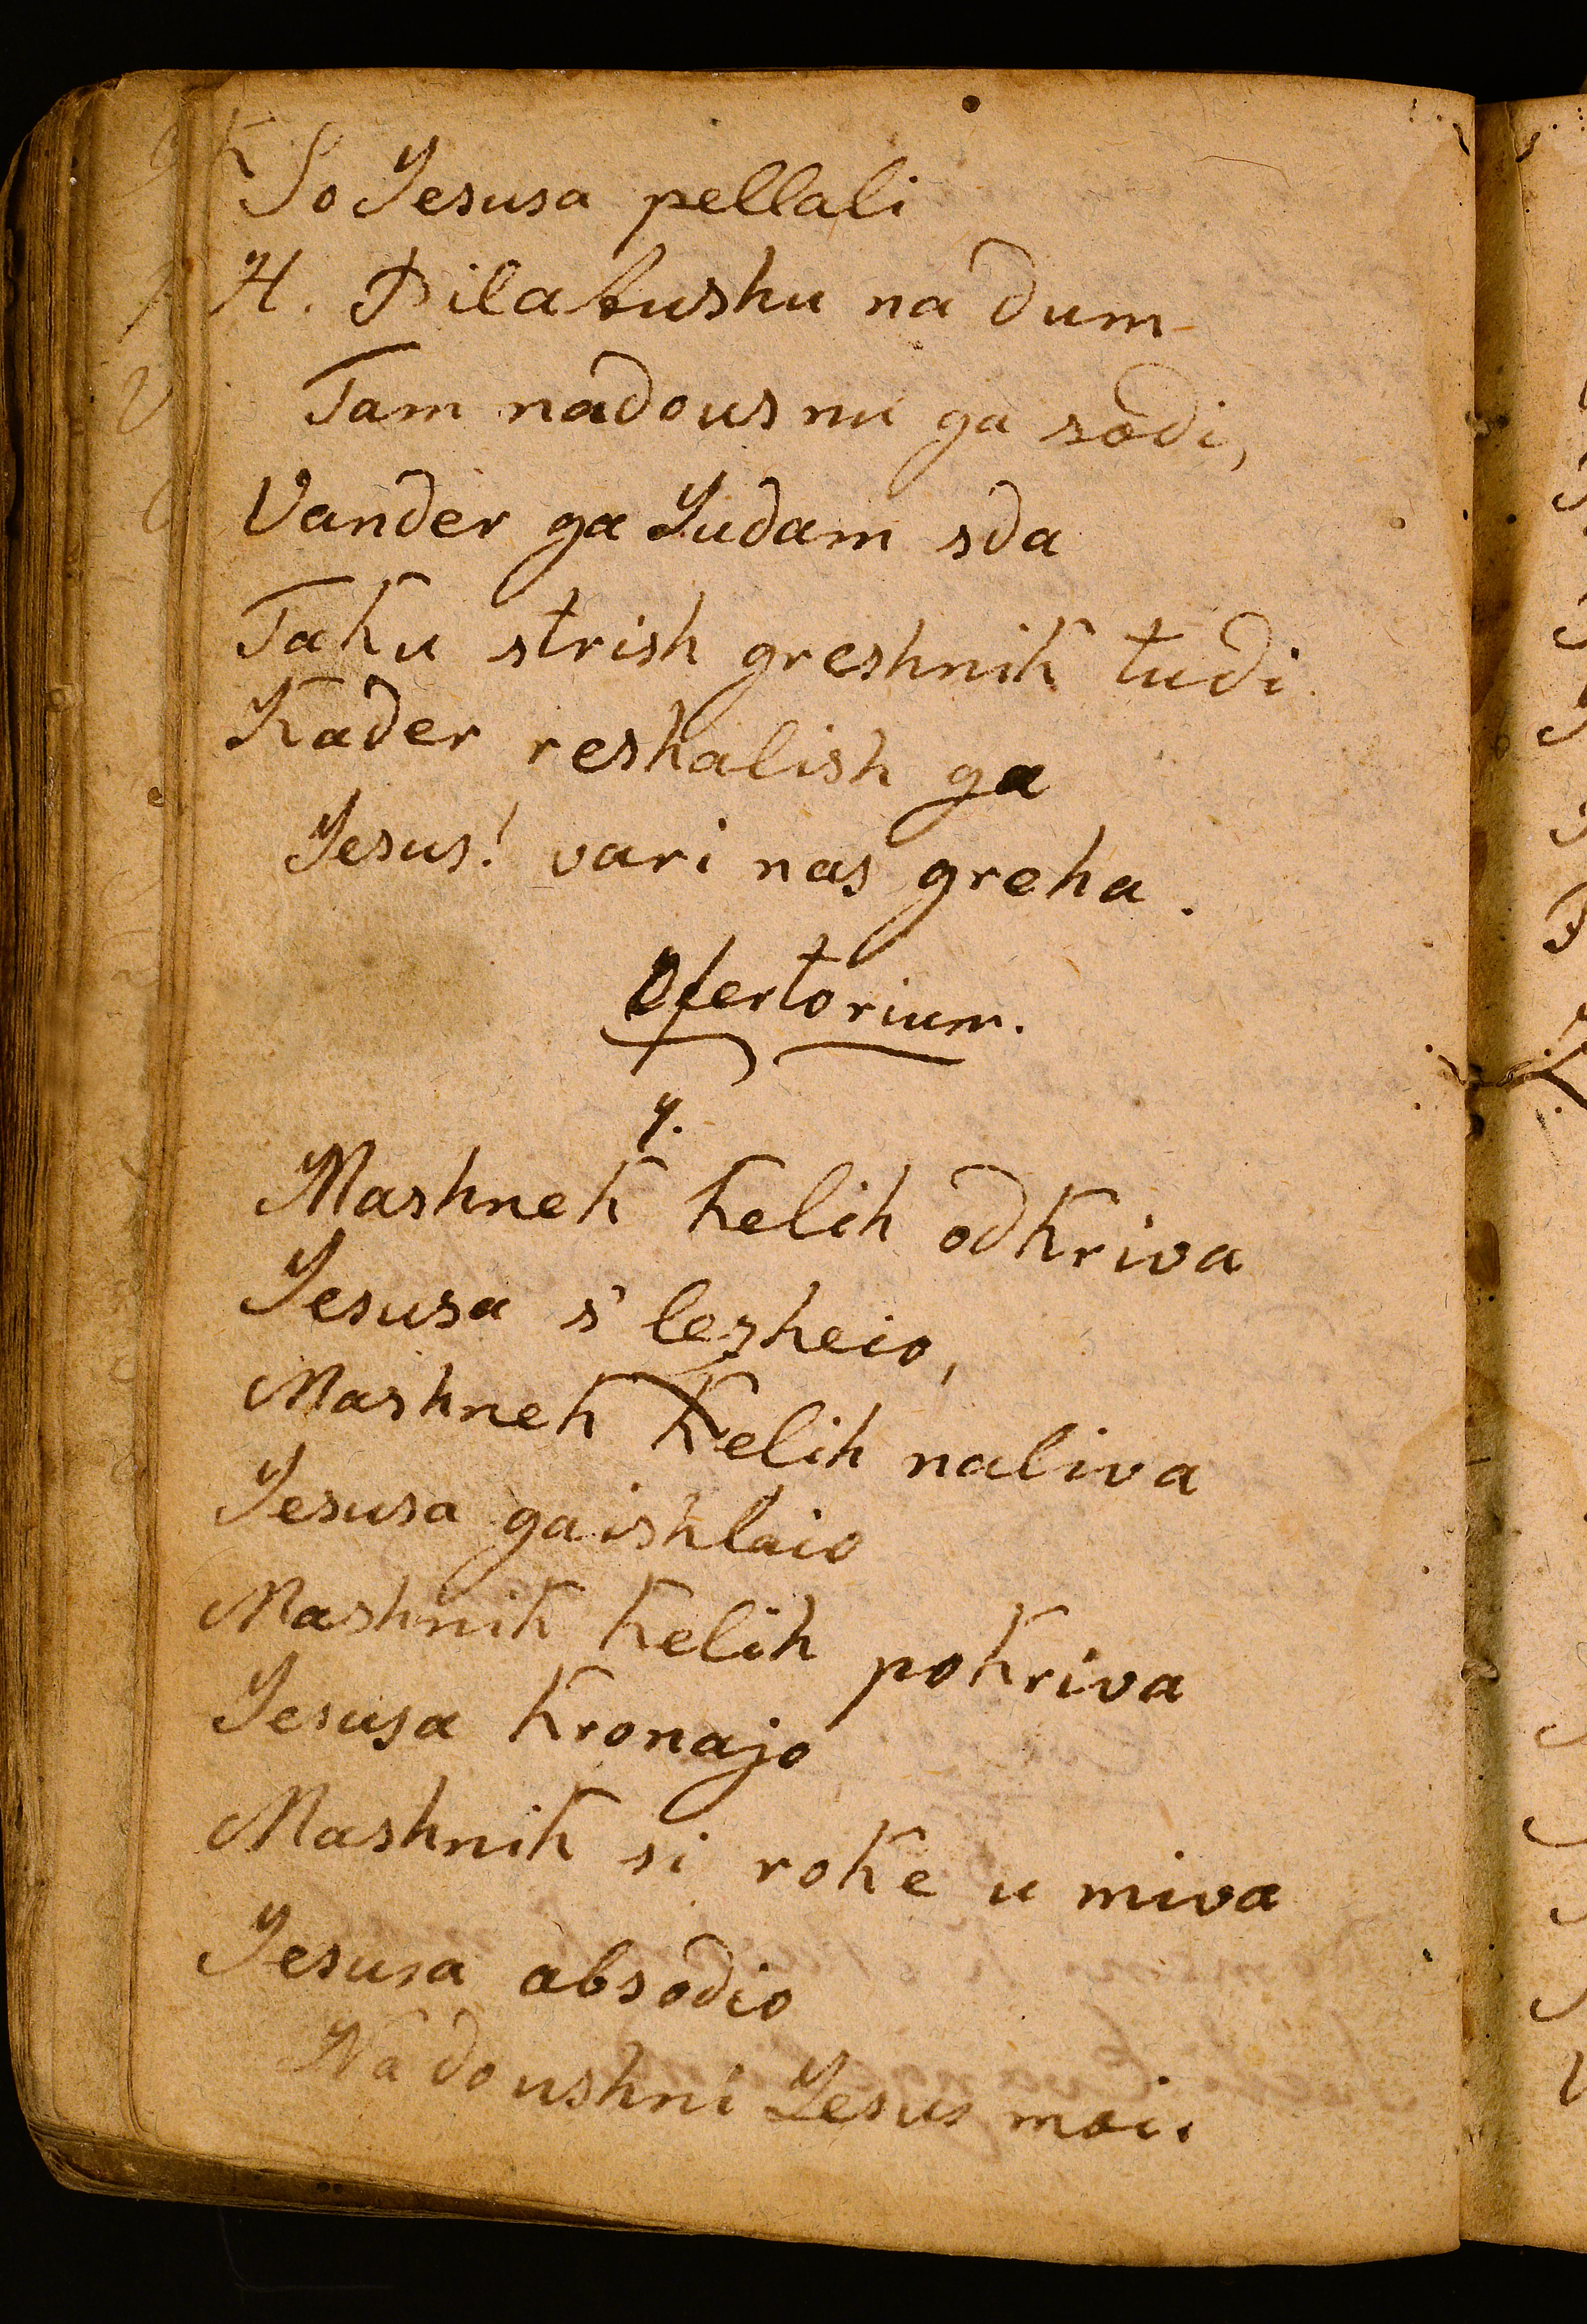 So Jesusa pellali
H. Pilatushu na dum
Tam nadousnu ga sodi,
Vander ga Judam sda
Taku strish greshnik tudi
Kader reshalish ga
Jesus! vari nas greha.
Ofertorium.
7.
Mashnek kelih odkriva
Jesusa s' lezheio,
Mashnek kelih naliva
Jesusa gaishlaio
Mashnik kelih pokriva
Jesusa kronajo
Mashnik si roke u miva
Jesusa absodio
Nadoushni Jesus moi.